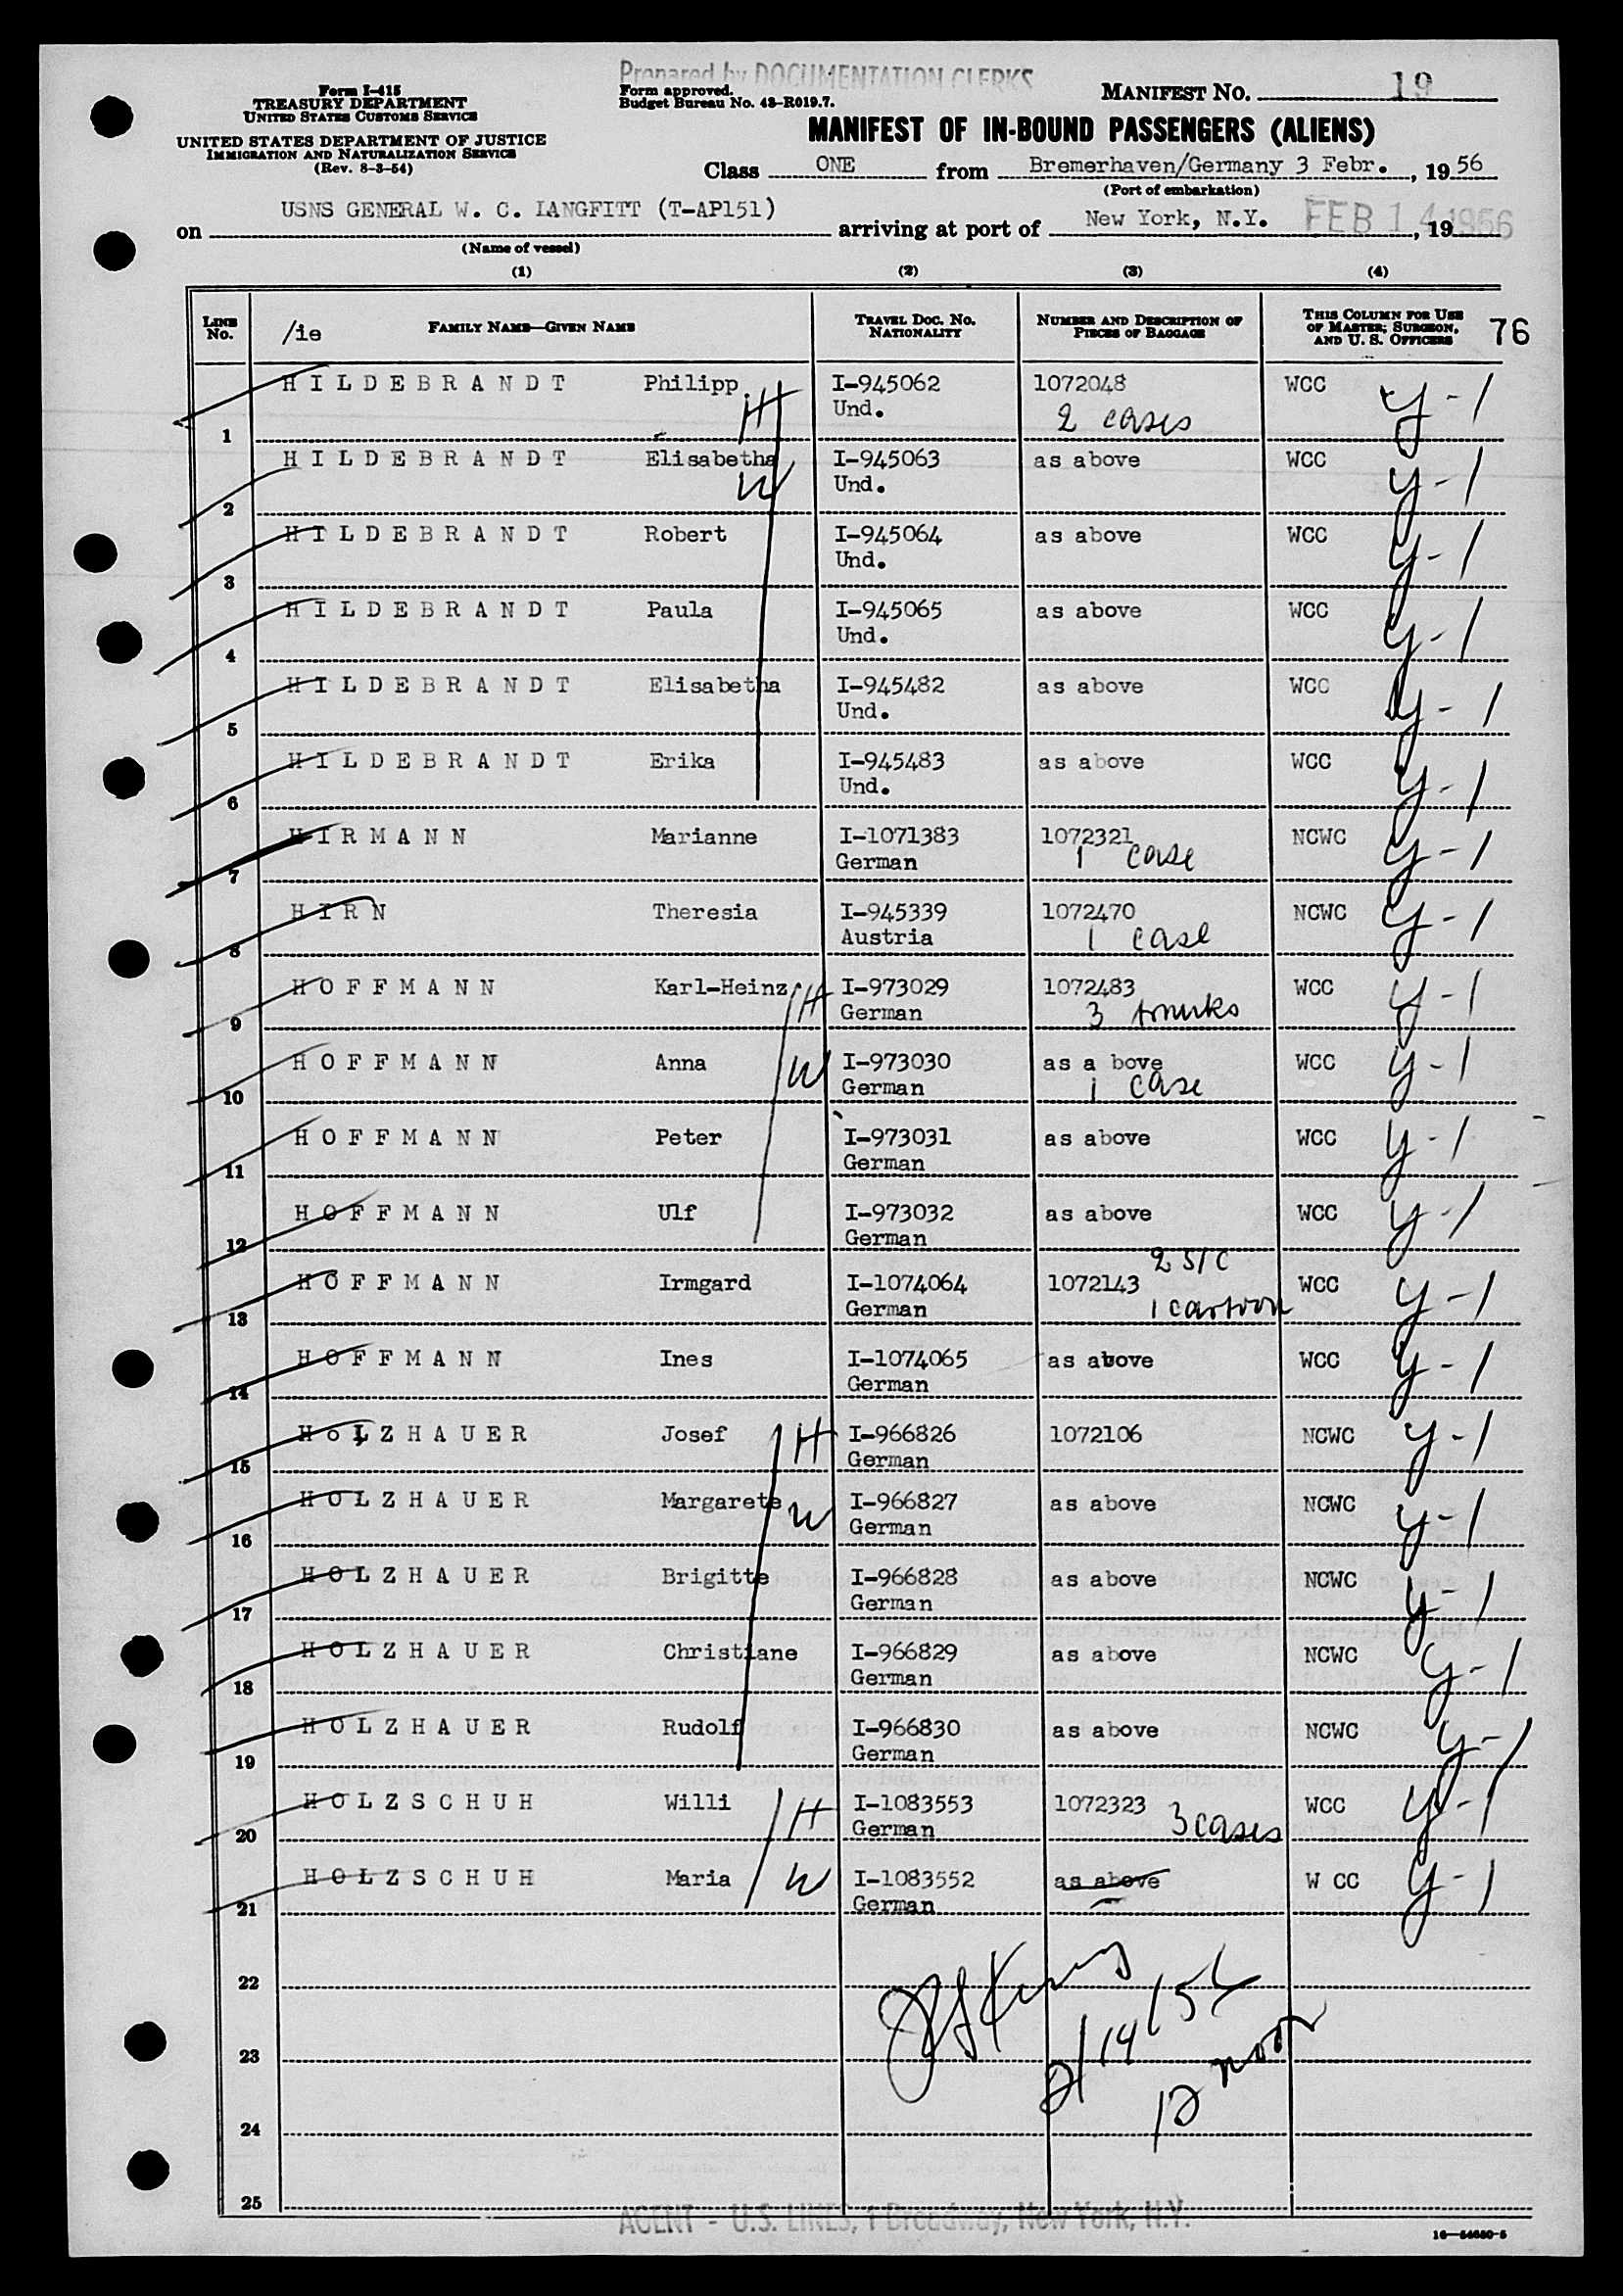 Prepared by DOCUMENTATION CLERKS
Form I-415
TREASURY DEPARTMENT
UNITED STATES CUSTOMS SERVICE
UNITED STATES DEPARTMENT OF JUSTICE
IMMIGRATION AND NATURALIZATION SERVICE
(Rev. 8-3-54)
Form approved.
Budget Bureau No. 43-R019.7.
MANIFEST NO. 19
MANIFEST OF IN-BOUND PASSENGERS (ALIENS)
Class ONE from Bremerhaven/Germany 3 Febr., 1956
(Port of embarkation)
on USNS GENERAL W. C. LANGFITT (T-AP151) arriving at port of New York, N.Y. FEB 14 1956, 19
(Name of vessel)
(1) (2) (3) (4)
LINE No. /ie FAMILY NAME—GIVEN NAME TRAVEL DOC. NO. NATIONALITY NUMBER AND DESCRIPTION OF PIECES OF BAGGAGE THIS COLUMN FOR USE OF MASTER, SURGEON, AND U. S. OFFICERS 76
1 HILDEBRANDT Philipp H I-945062 1072048 WCC y-1
Und. 2 cases
2 HILDEBRANDT Elisabetha W I-945063 as above WCC y-1
Und.
3 HILDEBRANDT Robert I-945064 as above WCC y-1
Und.
4 HILDEBRANDT Paula I-945065 as above WCC y-1
Und.
5 HILDEBRANDT Elisabetha I-945482 as above WCC y-1
Und.
6 HILDEBRANDT Erika I-945483 as above WCC y-1
Und.
7 HIRMANN Marianne I-1071383 1072321 NCWC y-1
German 1 case
8 HIRN Theresia I-945339 1072470 NCWC y-1
Austria 1 case
9 HOFFMANN Karl-Heinz H I-973029 1072483 WCC y-1
German 3 trunks
10 HOFFMANN Anna W I-973030 as a bove WCC y-1
German 1 case
11 HOFFMANN Peter I-973031 as above WCC y-1
German
12 HOFFMANN Ulf I-973032 as above WCC y-1
German
2 S/C
13 HOFFMANN Irmgard I-1074064 1072143 WCC y-1
German 1 cartoon
14 HOFFMANN Ines I-1074065 as above WCC y-1
German
15 HoLZHAUER Josef H I-966826 1072106 NCWC y-1
German
16 HOLZHAUER Margarete W I-966827 as above NCWC y-1
German
17 HOLZHAUER Brigitte I-966828 as above NCWC y-1
German
18 HOLZHAUER Christiane I-966829 as above NCWC y-1
German
19 HOLZHAUER Rudolf I-966830 as above NCWC y-1
German
20 HOLZSCHUH Willi H I-1083553 1072323 3 cases WCC y-1
German
21 HOLZSCHUH Maria W I-1083552 as above W CC y-1
German
22
2/14/56
23
12 noon
24
25
AGENT - U.S. LINES, 1 Broadway, New York, N.Y.
16—54680-5